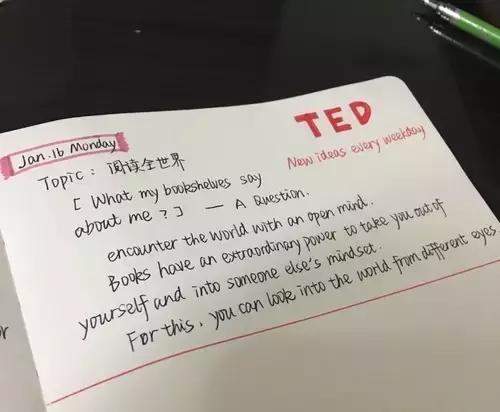 Jan.16 Monday
TED
New ideas every weekday
Topic: 阅读全世界
[ What my bookshelves say
about me ? ] — A Question.
encounter the world with an open mind.
Books have an extraordinary power to take you out of
yourself and into someone else's mindset.
For this, you can look into the world from different eyes.
or